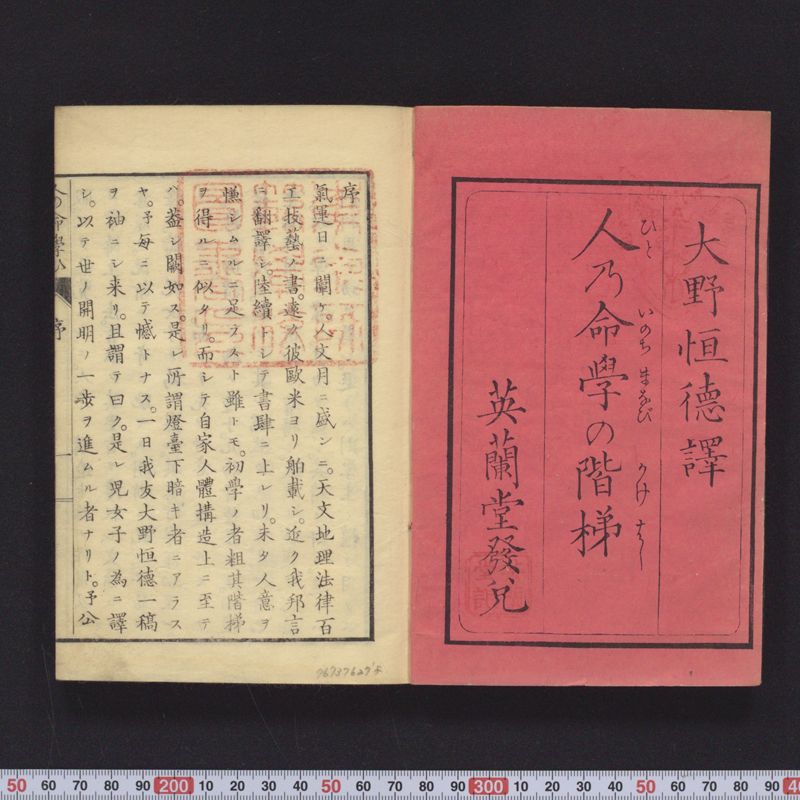 大野恒德譯
人乃命學の階梯
ひと いのち まなび かけはし
英蘭堂發兌
序
氣運日ニ闢ケ。人文月ニ盛ンニ。天文地理法律百
工技藝ノ書。遠ク彼歐米ヨリ舶載シ。近ク我邦言
ニ翻譯シ。陸續 シテ書肆ニ上レリ。未タ人意ヲ
慊シムルニ足ラスト雖トモ。初學ノ者粗其階梯
ヲ得ルニ似タリ。而シテ自家人體構造上ニ至テ
ハ。蓋シ闕如ス。是レ所謂燈臺下暗キ者ニアラス
ヤ。予毎ニ以テ憾トナス。一日我友大野恒德一稿
ヲ袖ニシ来リ。且謂テ曰ク。是レ児女子ノ為ニ譯
シ。以テ世ノ開明ノ一歩ヲ進ムル者ナリト。予公
序
一
767376279
50 60 70 80 90 200 10 20 30 40 50 60 70 80 90 300 10 20 30 40 50 60 70 80 90